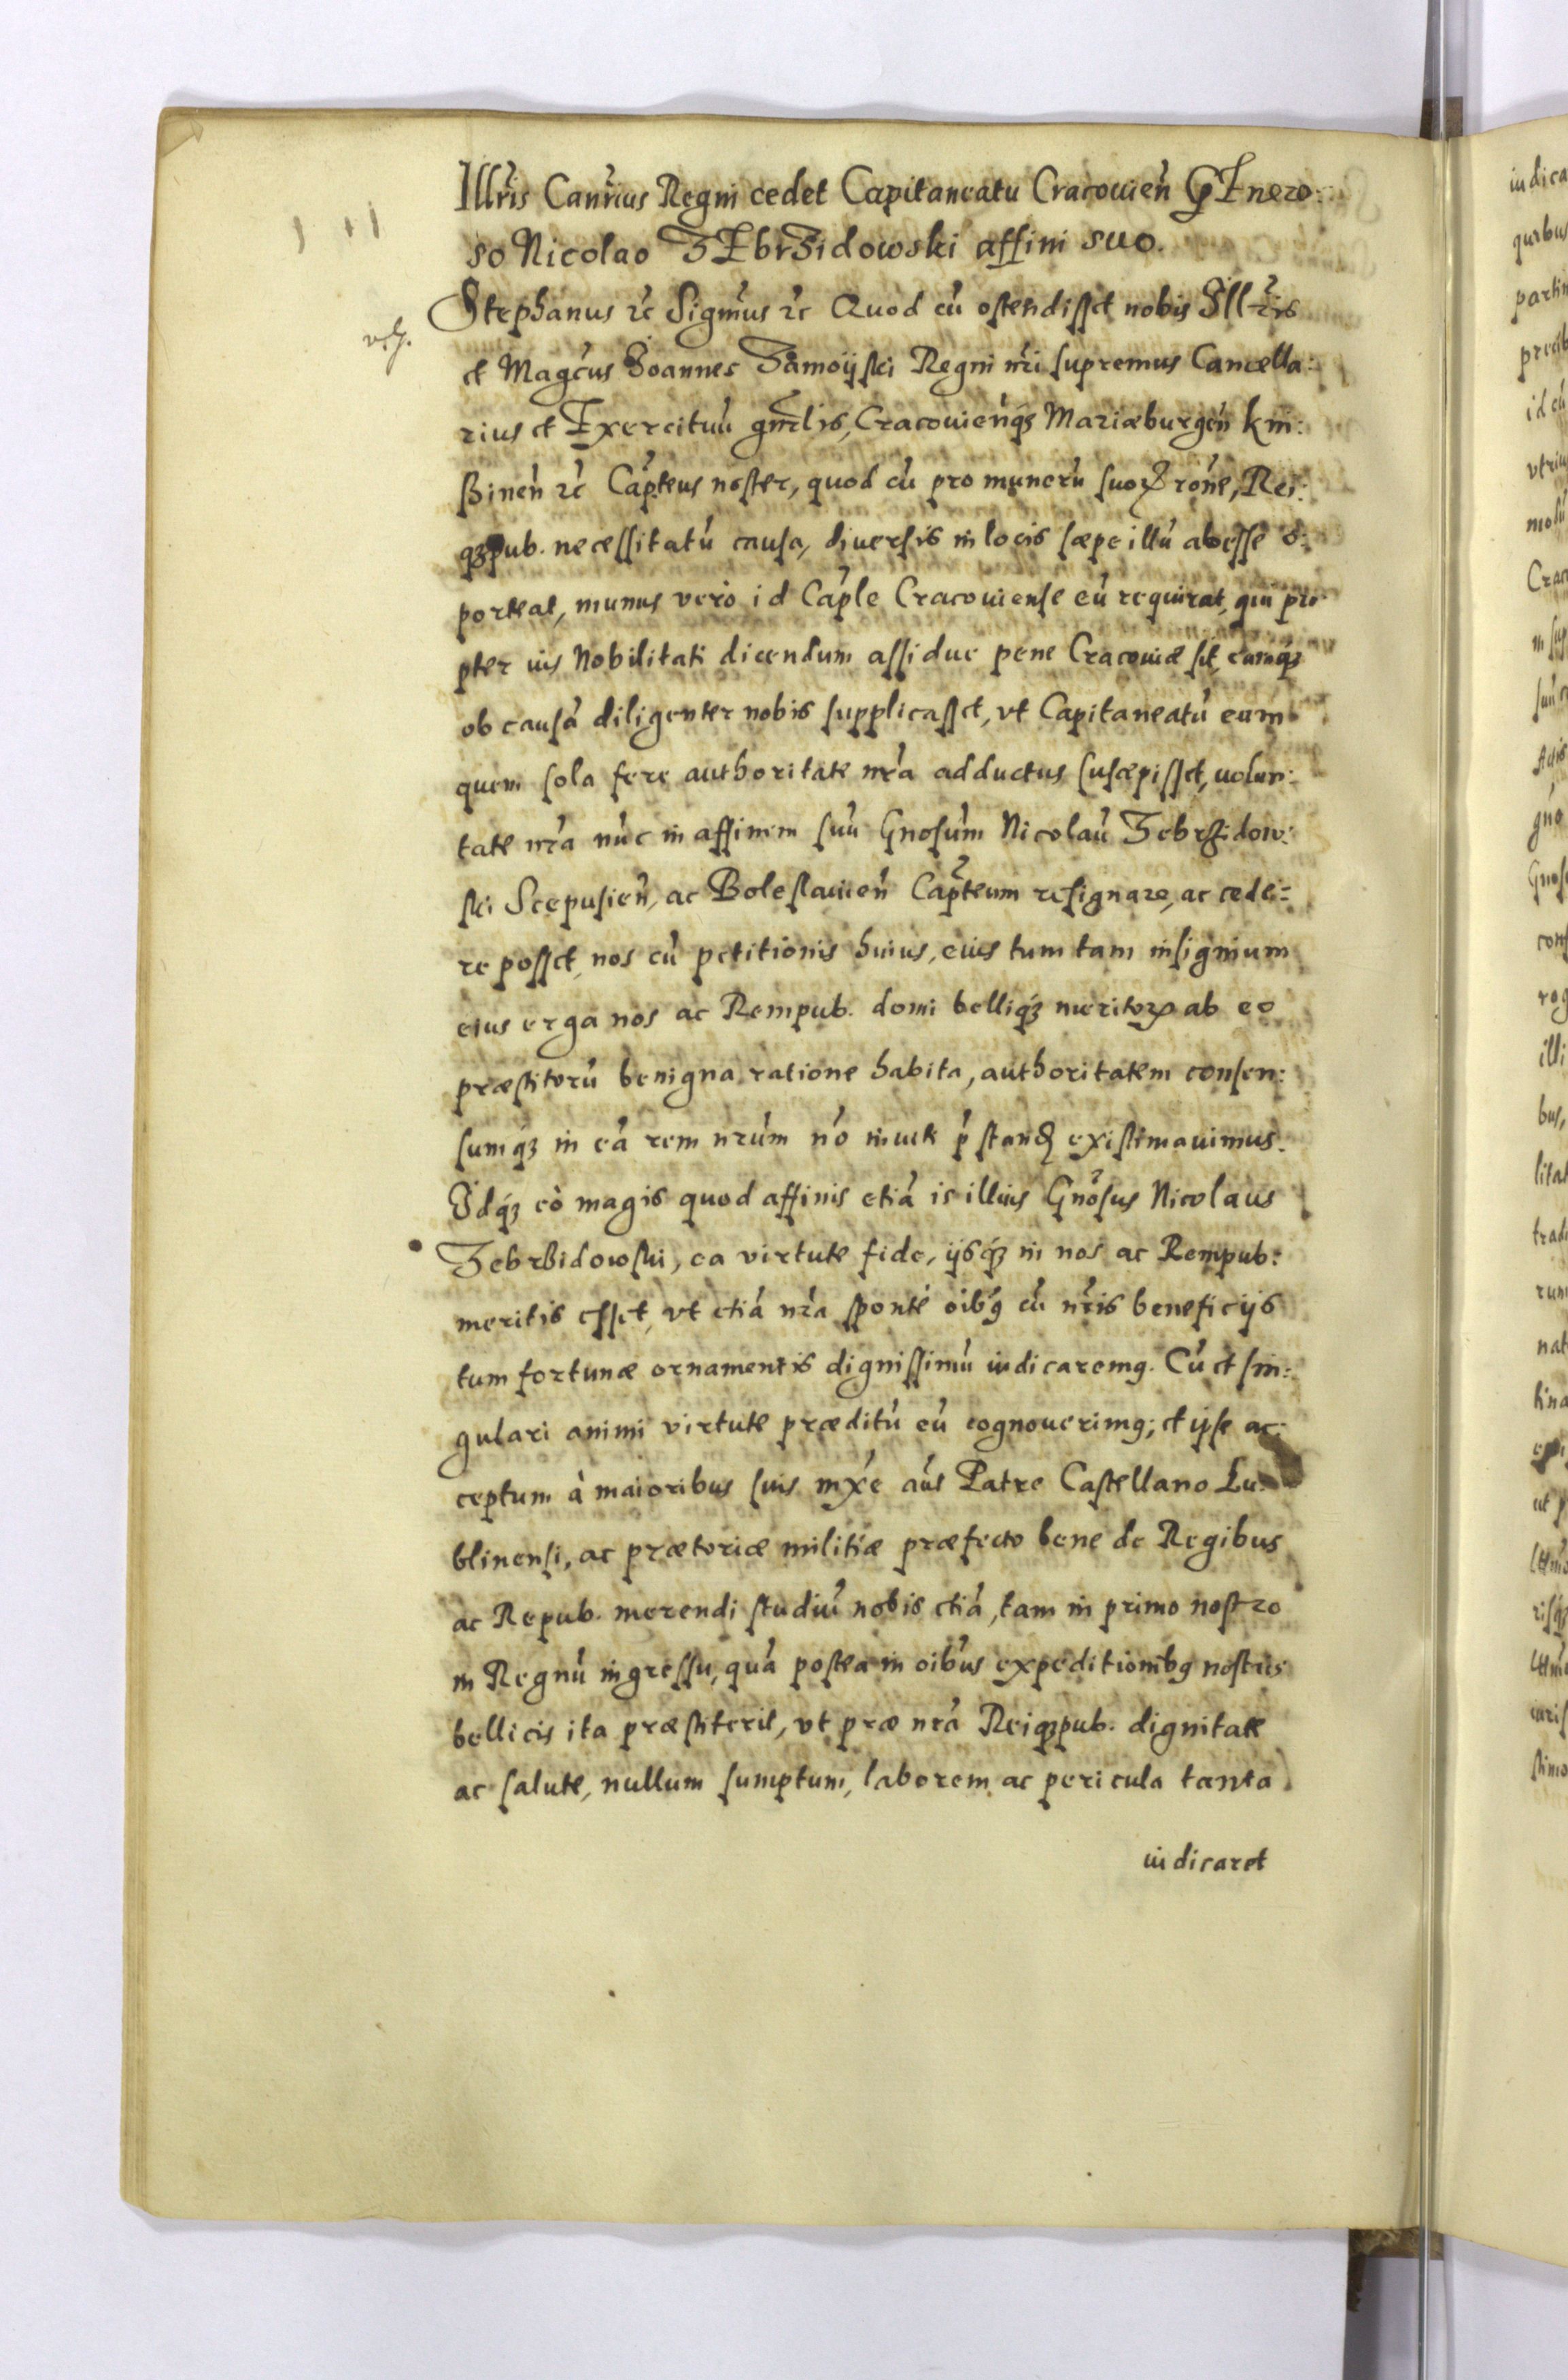 Illr̃is Canr̃ius Regni cedet Capitaneatu Cracovień GEnero:
so Nicolao ZEbrZidowski affini suo.
Stephanus ꝛc Sigm̃us ꝛc Quod cũ ostendisset nobis Illr̃is
et Magc̃us Joannes Zamoyski Regni nr̃i supremus Cancella:
rius et Exercituũ gnr̃lis, Cracovieñq́ꝫ Mariæburgeñ kni:
ßineñ ꝛc Cap̃teus noster, quod cũ pro munerũ suoꝝ rõne, Rei:
qꝫpub. necessitatũ causa, diversis in locis sæpe illũ abesse o:
porteat, munus verò id Cap̃le Cracoviense eũ requirat, qui pro
pter ius Nobilitati dicendum assidue pene Cracoviæ sit, eamq́ꝫ
ob causã diligenter nobis supplicasset, vt Capitaneatũ eum
quem sola fere authoritate nr̃a adductus suscepisset, volun:
tate nr̃a nũc in affinem suũ Gnosũm Nicolaũ Zebrzidow:
ski Scepusień, ac Boleslavień Cap̃teum resignare, ac cede:
re posset, nos cũ petitionis huius, eius tum tam insignium
eius erga nos ac Rempub. domi belliq́ꝫ meritoꝝ ab eo
præstitorũ benigna ratione habita, authoritatem consen:
sumq́ꝫ in eã rem nr̃um nõ invite p̃standꝭ existimavimus.
Idq́ꝫ eò magis quod affinis etiã is illius Gnõsus Nicolaus
Zebrßidowski, ea virtute fide, ijsq́ꝫ in nos ac Rempub:
meritis esset, vt etiã nr̃a sponte oĩbꝯ cũ nr̃is beneficijs
tum fortunæ ornamentis dignissimũ iudicaremꝯ. Cũ et sin:
gulari animi virtute præditũ eũ cognoverimꝯ; et ipse ac
ceptum à maioribus suis mx̃e aũs Patre Castellano Lu:
blinensi, ac prætoriæ militiæ præfecto bene de Regibus
ac Repub. merendi studiũ nobis etiã, tam in primo nostro
in Regnũ ingressu, quã postea in oĩbus expeditionibꝯ nostris
bellicis ita præstiterit, vt præ nr̃a Reiqꝫpub. dignitate
ac salute, nullum sumptum, laborem ac pericula tanta
iudicaret